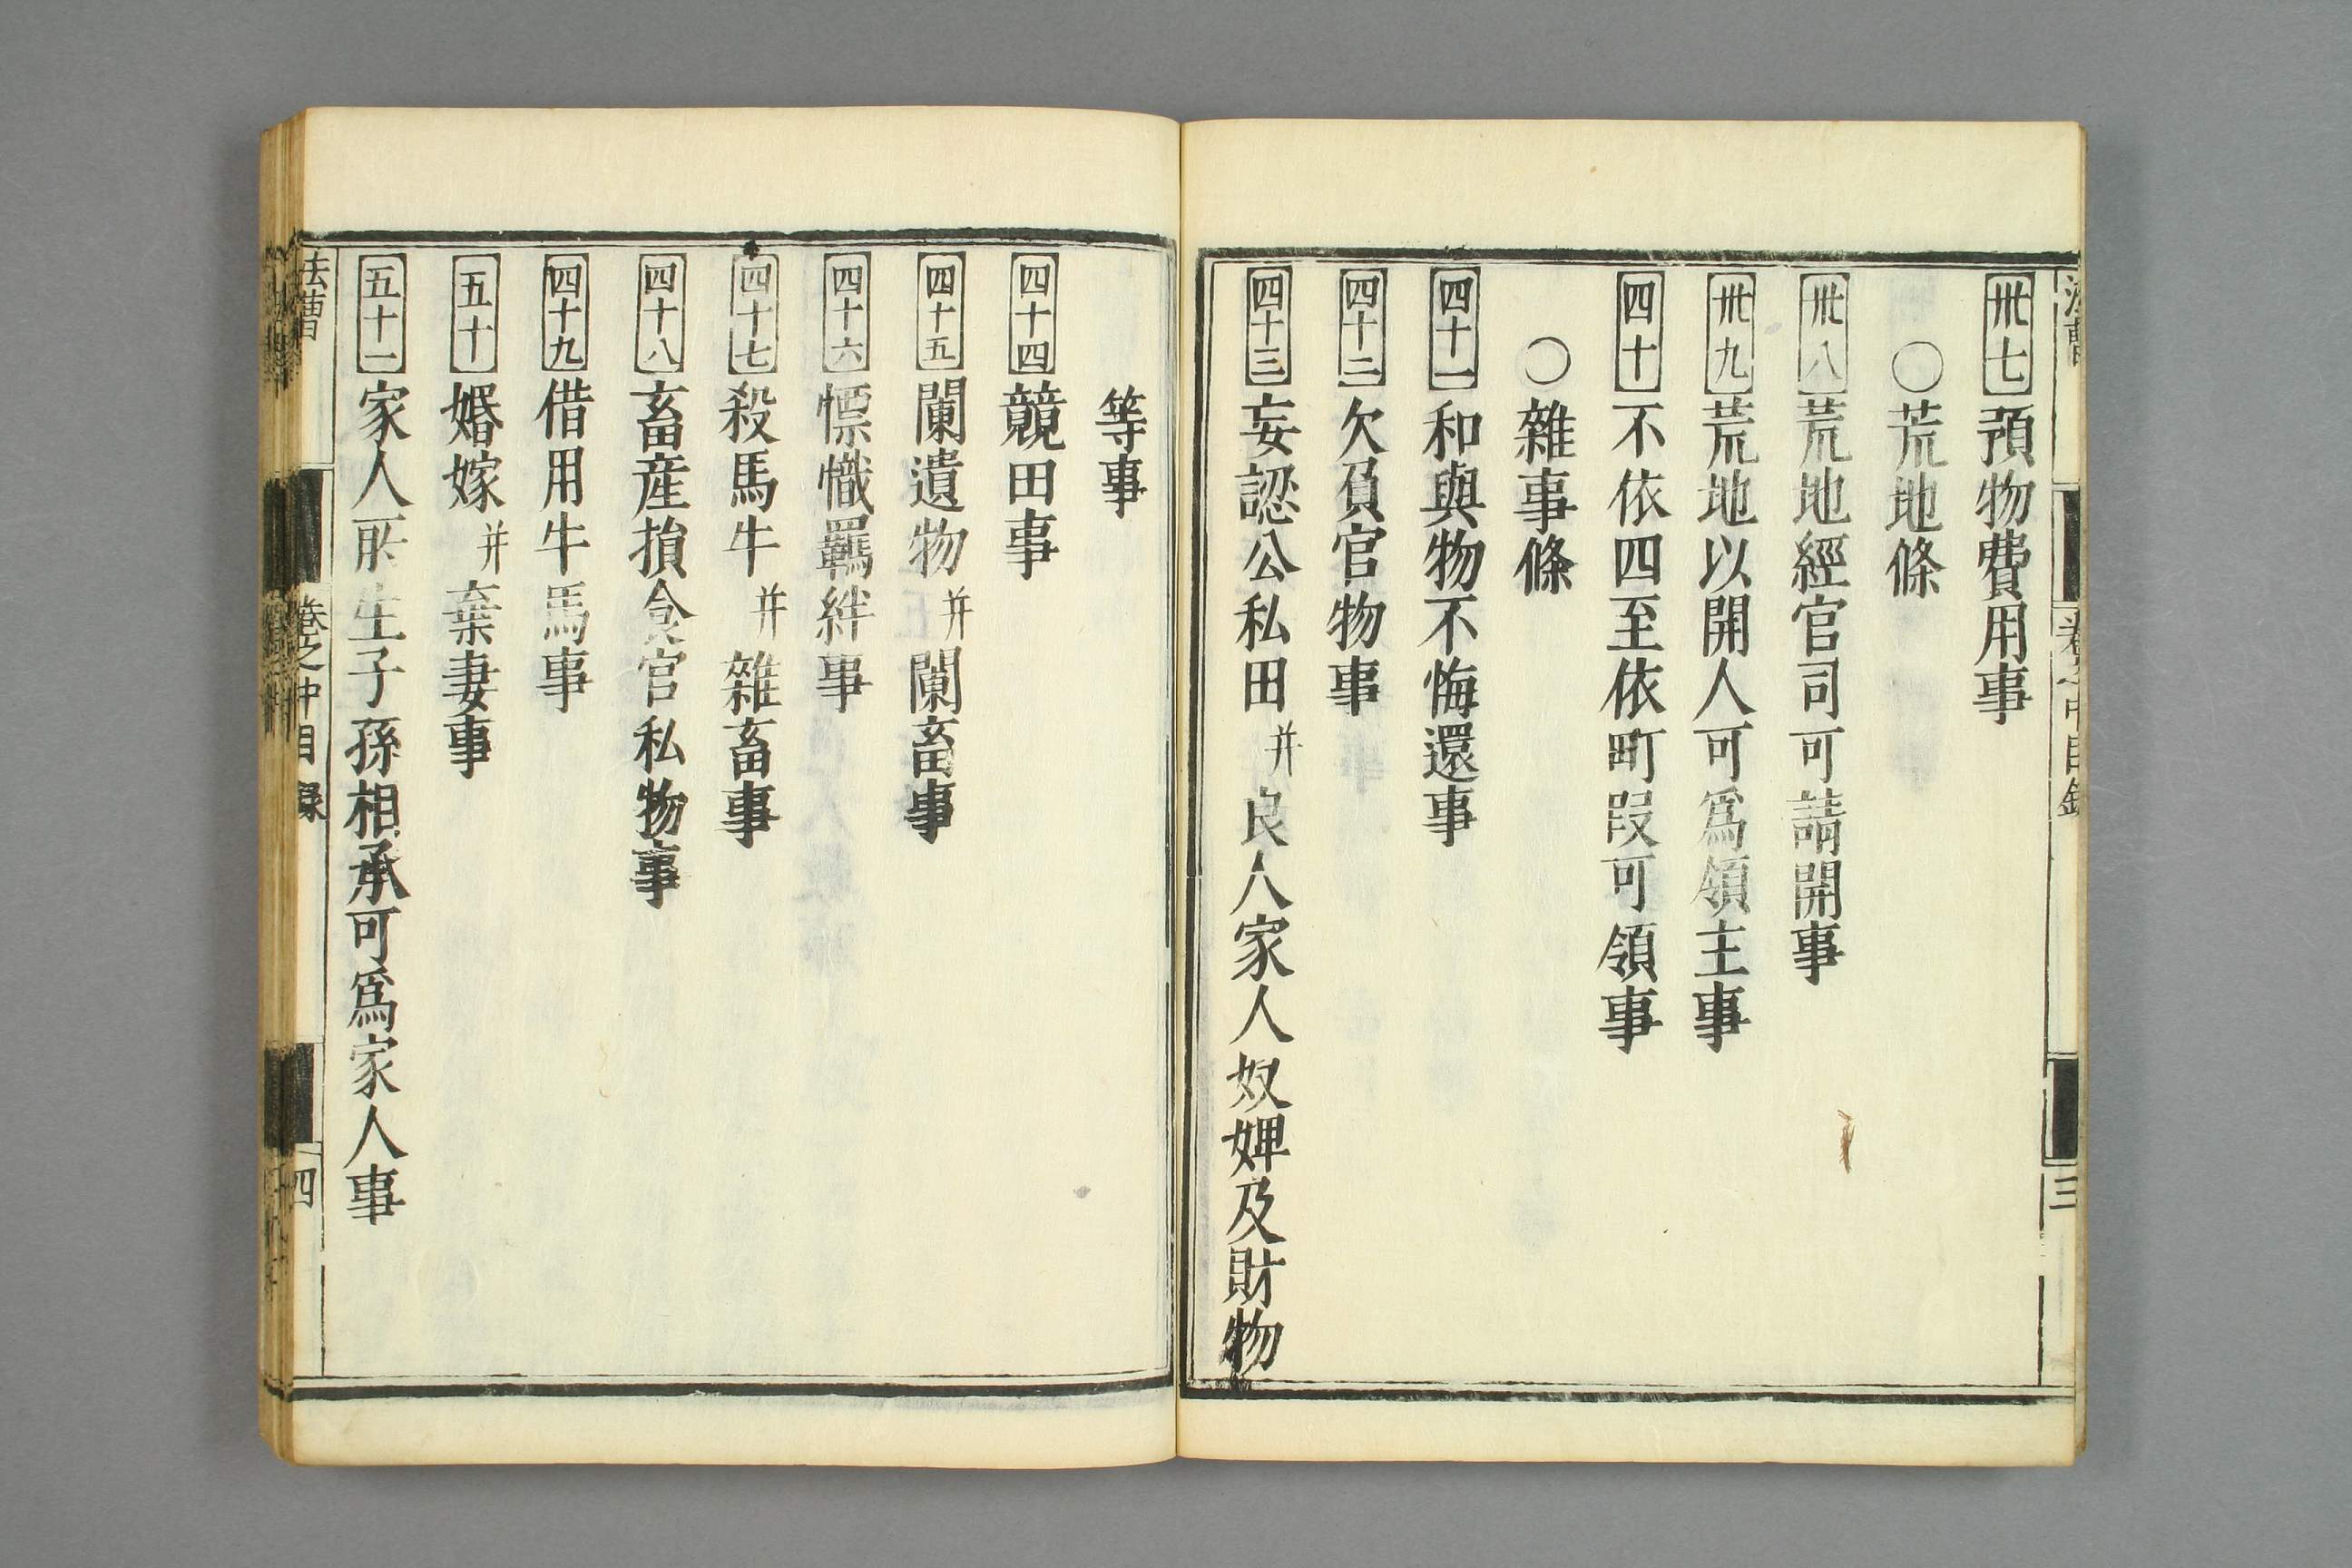 卅七 預物費用事
○荒地條
卅八 荒地經官司可請開事
卅九 荒地以開人可爲領主事
四十 不依四至依町段可領事
○雜事條
四十一 和與物不悔還事
四十二 欠負官物事
四十三 妄認公私田并良人家人奴婢及財物
等事
四十四 競田事
四十五 闌遺物并闌畜事
四十六 慓幟羈絆事
四十七 殺馬牛并雜畜事
四十八 畜産損食官私物事
四十九 借用牛馬事
五十 婚嫁并棄妻事
五十一 家人所生子孫相承可爲家人事
法曹 卷之中目錄 四